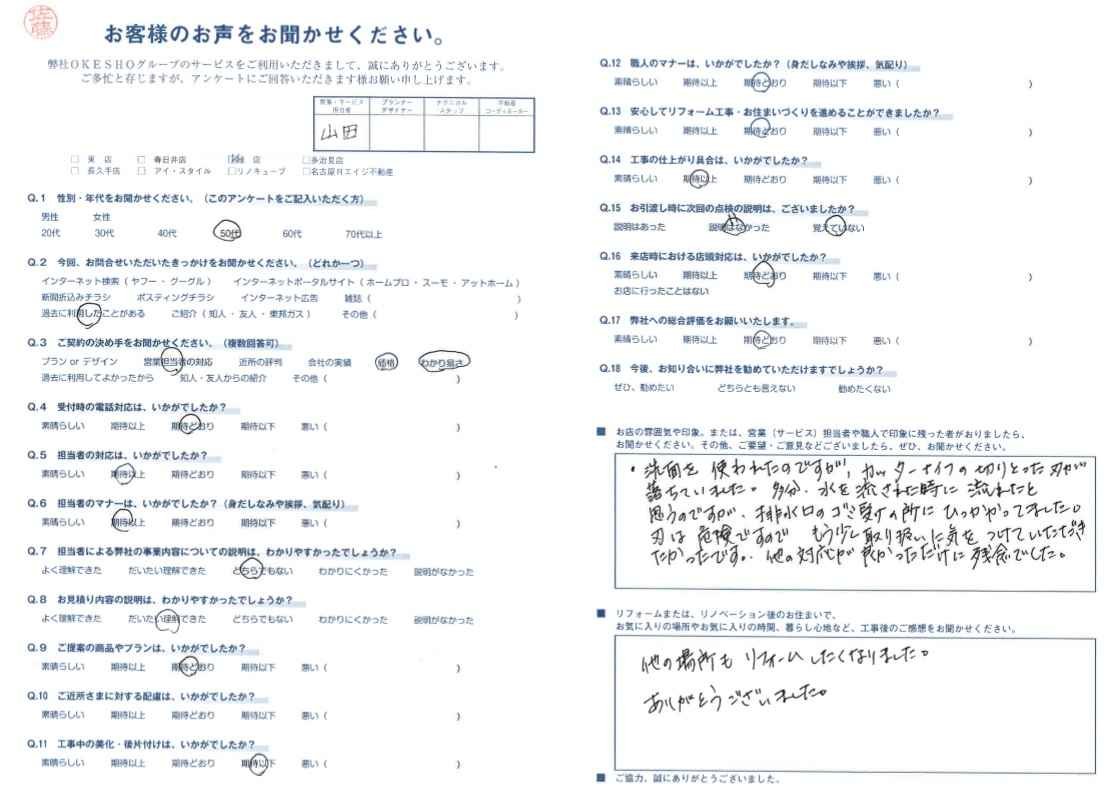 佐藤
お客様のお声をお聞かせください。
弊社OKESHOグループのサービスをご利用いただきまして、誠にありがとうございます。
ご多忙と存じますが、アンケートにご回答いただきます様お願い申し上げます。
営業・サービス担当者 プランナーデザイナー テクニカルスタッフ 不動産コーディネーター
山田
□ 東 店 □ 春日井店 店 □多治見店
□ 長久手店 □ アイ・スタイル □リノキューブ □名古屋Rエイジ不動産
Q.1 性別・年代をお聞かせください。(このアンケートをご記入いただく方)
男性 女性
20代 30代 40代 50代 60代 70代以上
Q.2 今回、お問合せいただいたきっかけをお聞かせください。(どれか一つ)
インターネット検索(ヤフー・グーグル) インターネットポータルサイト(ホームプロ・スーモ・アットホーム)
新聞折込みチラシ ポスティングチラシ インターネット広告 雑誌( )
過去に利用したことがある ご紹介(知人・友人・東邦ガス) その他( )
Q.3 ご契約の決め手をお聞かせください。(複数回答可)
プラン or デザイン 営業担当者の対応 近所の評判 会社の実績 価格 わかり易さ
過去に利用してよかったから 知人・友人からの紹介 その他( )
Q.4 受付時の電話対応は、いかがでしたか?
素晴らしい 期待以上 期待どおり 期待以下 悪い( )
Q.5 担当者の対応は、いかがでしたか?
素晴らしい 期待以上 期待どおり 期待以下 悪い( )
Q.6 担当者のマナーは、いかがでしたか?(身だしなみや挨拶、気配り)
素晴らしい 期待以上 期待どおり 期待以下 悪い( )
Q.7 担当者による弊社の事業内容についての説明は、わかりやすかったでしょうか?
よく理解できた だいたい理解できた どちらでもない わかりにくかった 説明がなかった
Q.8 お見積り内容の説明は、わかりやすかったでしょうか?
よく理解できた だいたい理解できた どちらでもない わかりにくかった 説明がなかった
Q.9 ご提案の商品やプランは、いかがでしたか?
素晴らしい 期待以上 期待どおり 期待以下 悪い( )
Q.10 ご近所さまに対する配慮は、いかがでしたか?
素晴らしい 期待以上 期待どおり 期待以下 悪い( )
Q.11 工事中の美化・後片付けは、いかがでしたか?
素晴らしい 期待以上 期待どおり 期待以下 悪い( )
Q.12 職人のマナーは、いかがでしたか?(身だしなみや挨拶、気配り)
素晴らしい 期待以上 期待どおり 期待以下 悪い( )
Q.13 安心してリフォーム工事・お住まいづくりを進めることができましたか?
素晴らしい 期待以上 期待どおり 期待以下 悪い( )
Q.14 工事の仕上がり具合は、いかがでしたか?
素晴らしい 期待以上 期待どおり 期待以下 悪い( )
Q.15 お引渡し時に次回の点検の説明は、ございましたか?
説明はあった 説明はなかった 覚えていない
Q.16 来店時における店頭対応は、いかがでしたか?
素晴らしい 期待以上 期待どおり 期待以下 悪い( )
お店に行ったことはない
Q.17 弊社への総合評価をお願いいたします。
素晴らしい 期待以上 期待どおり 期待以下 悪い( )
Q.18 今後、お知り合いに弊社を勧めていただけますでしょうか?
ぜひ、勧めたい どちらとも言えない 勧めたくない
■ お店の雰囲気や印象。または、営業(サービス)担当者や職人で印象に残った者がおりましたら、
お聞かせください。その他、ご要望・ご意見などございましたら、ぜひ、お聞かせください。
・洗面を使われたのですが、カッターナイフの切りとった刃が
落ちていました。多分、水を流された時に流れたと
思うのですが、排水口のゴミ受けの所にひっかかってました。
刃は危険ですので もう少し取り扱いに気をつけていただき
たかったです。他の対応が良かっただけに残念でした。
■ リフォームまたは、リノベーション後のお住まいで、
お気に入りの場所やお気に入りの時間、暮らし心地など、工事後のご感想をお聞かせください。
他の場所もリフォームしたくなりました。
ありがとうございました。
■ ご協力、誠にありがとうございました。